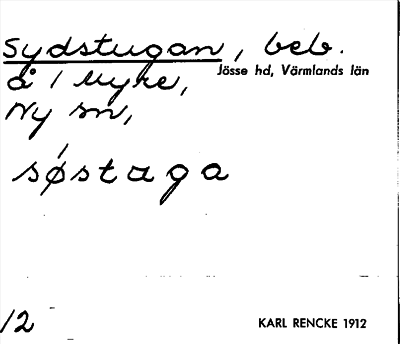 Sydstugan, beb.
å 1 Myre,
Jösse hd, Värmlands län
Ny sn,
sǿstaga
12
KARL RENCKE 1912